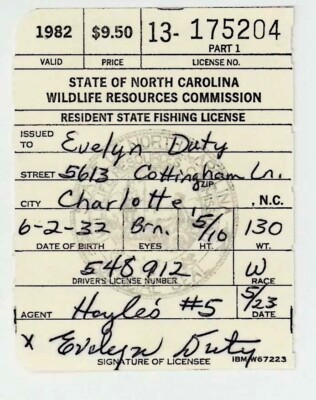 1982 $9.50 13- 175204
VALID PRICE PART 1 LICENSE NO.
STATE OF NORTH CAROLINA
WILDLIFE RESOURCES COMMISSION
RESIDENT STATE FISHING LICENSE
ISSUED TO Evelyn Duty
STREET 5613 Cottingham Ln.
ZIP
CITY Charlotte, N.C.
6-2-32 Brn. 5/10 130
DATE OF BIRTH EYES HT. WT.
548912 W
DRIVERS LICENSE NUMBER RACE
AGENT Hayle's #5 5/23
DATE
X Evelyn Duty
SIGNATURE OF LICENSEE IBM W67223